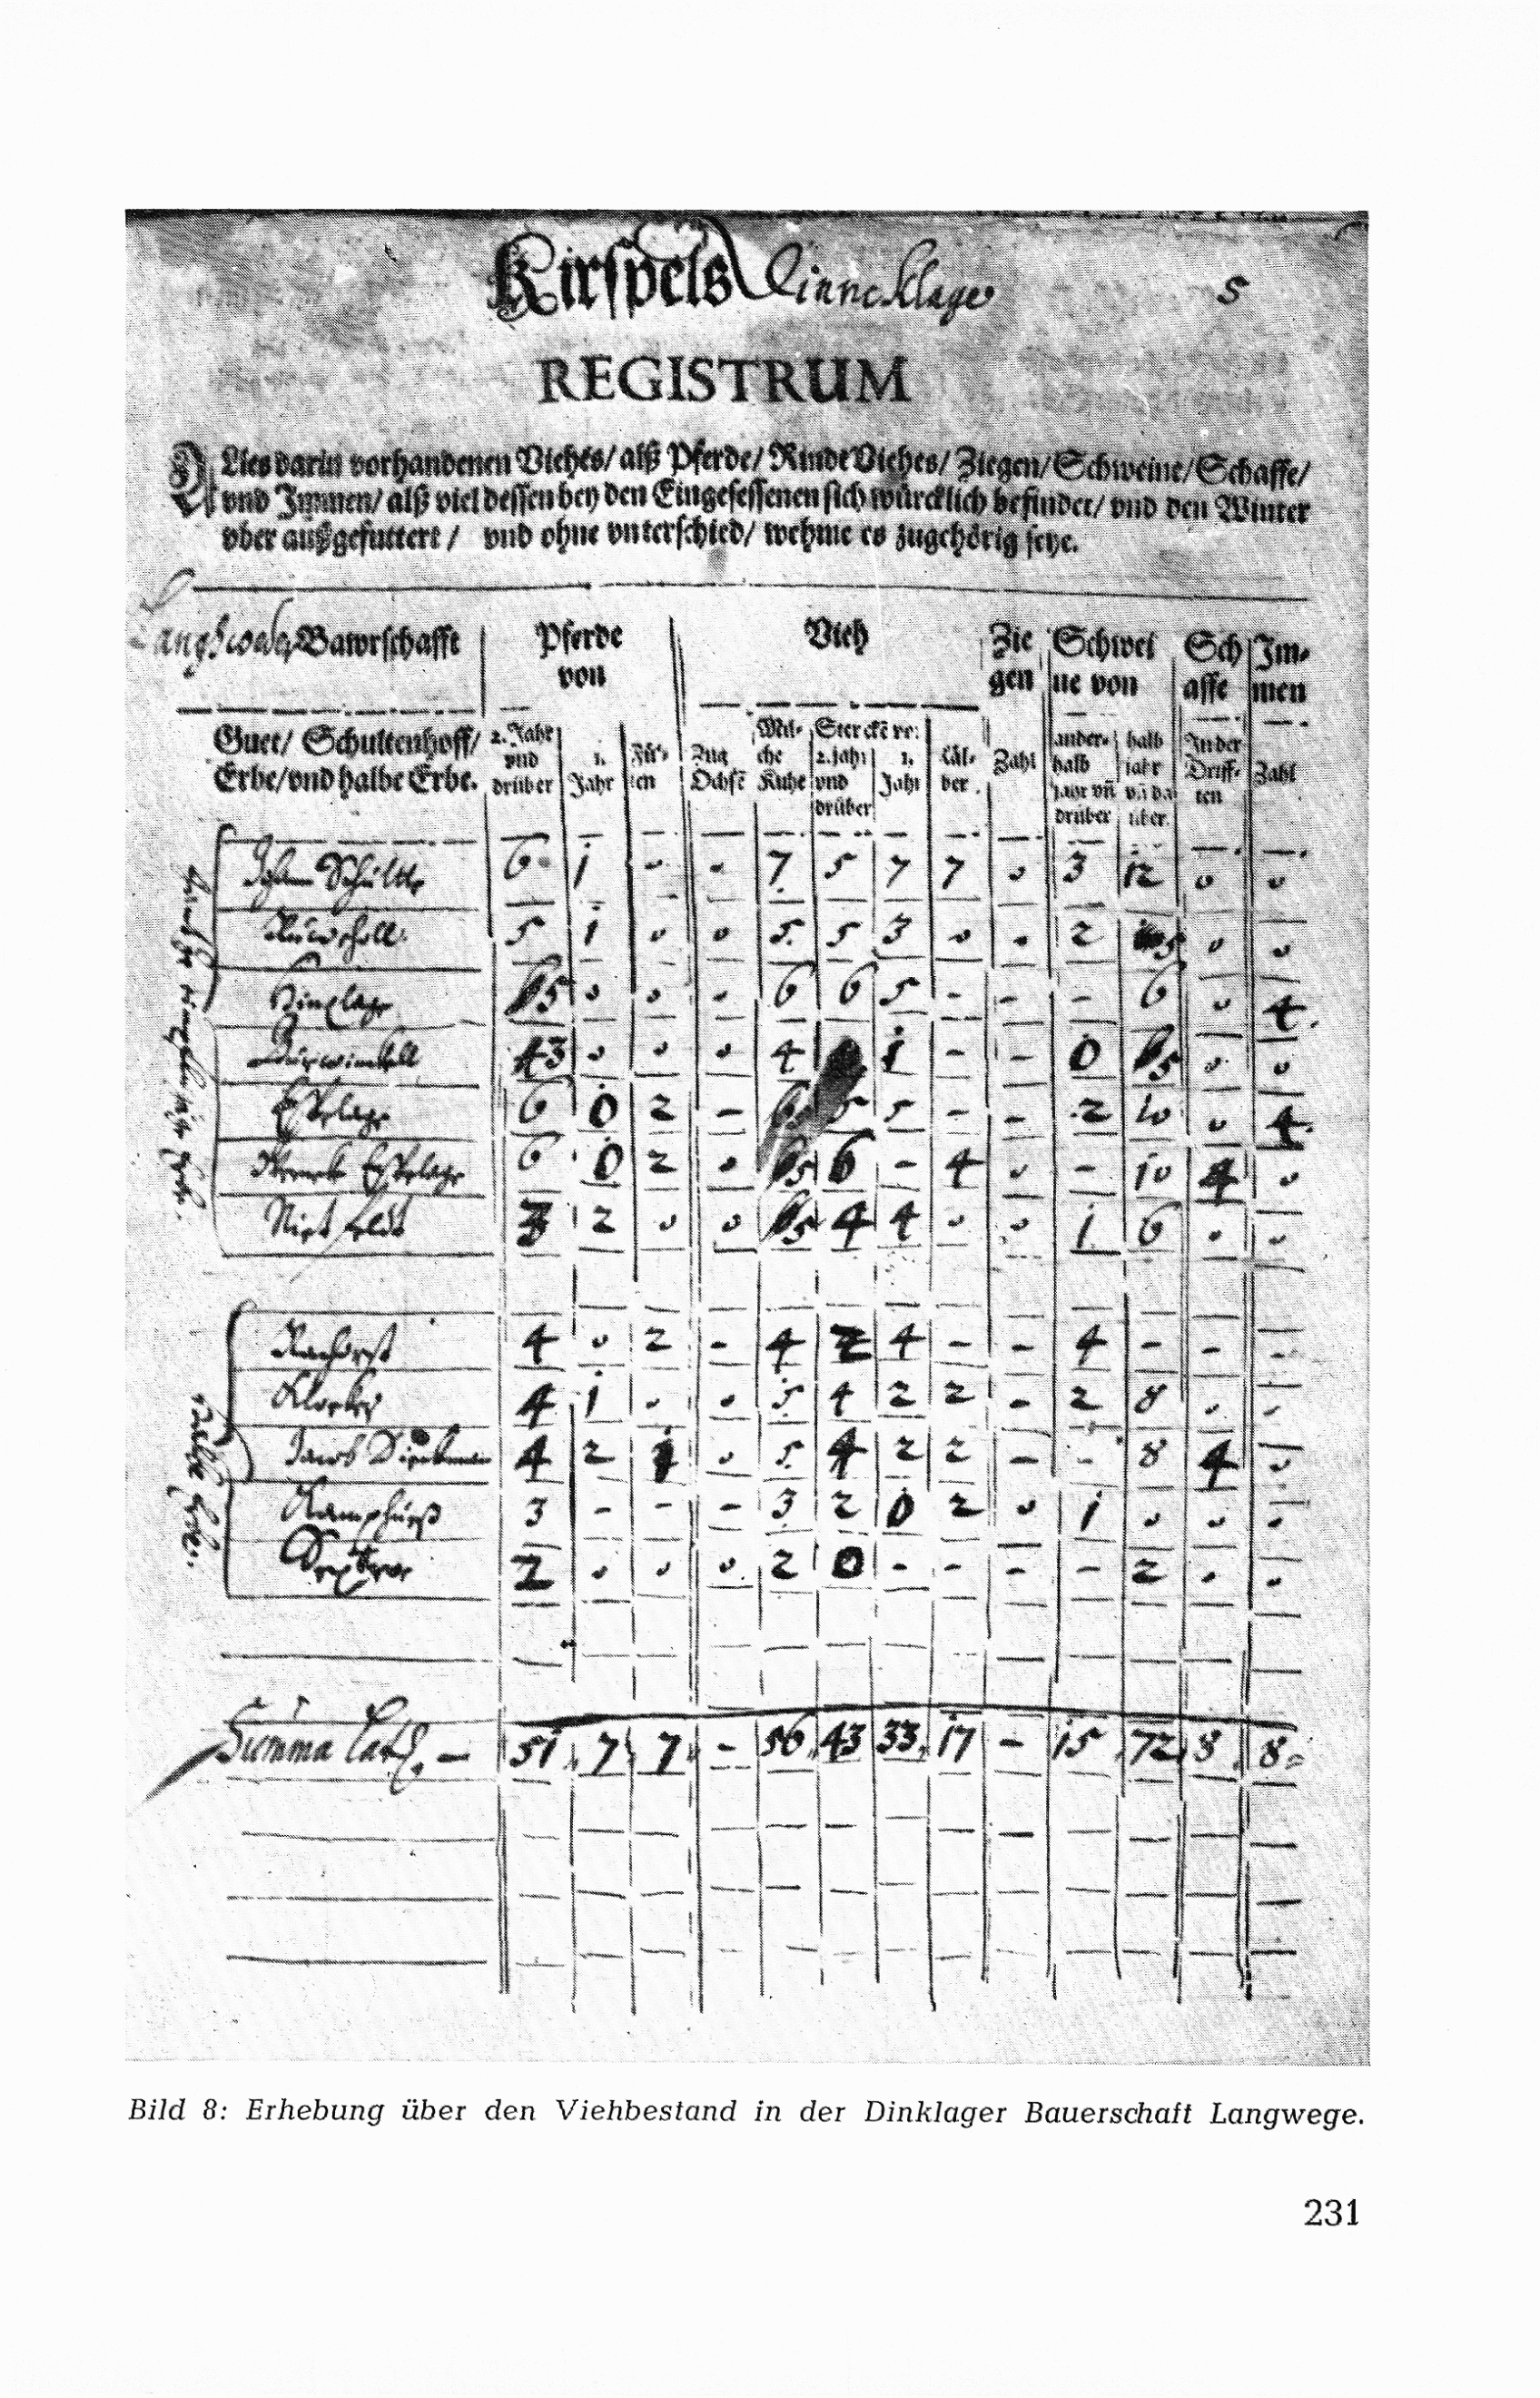 Kirspels Dinncklage
5
REGISTRUM
Alles darin vorhandenen Viehes/ alß Pferde/ Rinde Viehes/ Ziegen/ Schweine/ Schaffe/
vnd Immen/ alß viel dessen bey den Eingesessenen sich würcklich befindet/ vnd den Winter
vber außgefuttert / vnd ohne vnterschied/ wehme es zugehörig seye.
Langhweger Bawrschafft Pferde von Vieh Zie gen Schwei ne von Sch affe Im- men
Guet/ Schultenhoff/ Erbe/ vnd halbe Erbe. 2. Jahr vnd drüber 1. Jahr Fül- len Zug Ochsē Mil- che Kuhe Stercke vō: 2. jahr vnd drüber 1. Jahr Käl- ber Zahl ander- halb jahr vñ drüber halb jahr vñ da über In der Driff- ten Zahl
Johan Schulte 6 1 - - 7 5 7 7 - 3 12 - -
5 1 - - 5 5 3 - - 2 5 - -
Hinxlage 5 - - - 6 6 5 - - - 6 - 4
3 - - - 4 1 - - 0 5 - -
Eskelage 6 0 2 - 5 5 - - 2 10 - 4
Eskelage 6 0 2 - 5 6 - 4 - - 10 4 -
3 2 - - 5 4 4 - - 1 6 - -
4 - 2 - 4 2 4 - - 4 - - -
4 1 - - 5 4 2 2 - 2 8 - -
Jacob 4 2 1 - 5 4 2 2 - - 8 4 -
Kamphuß 3 - - - 3 2 0 2 - 1 - - -
2 - - - 2 0 - - - - 2 - -
halbe Erbe.
Summa Lat. - 51 7 7 - 56 43 33 17 - 15 72 8 8
Bild 8: Erhebung über den Viehbestand in der Dinklager Bauerschaft Langwege.
231